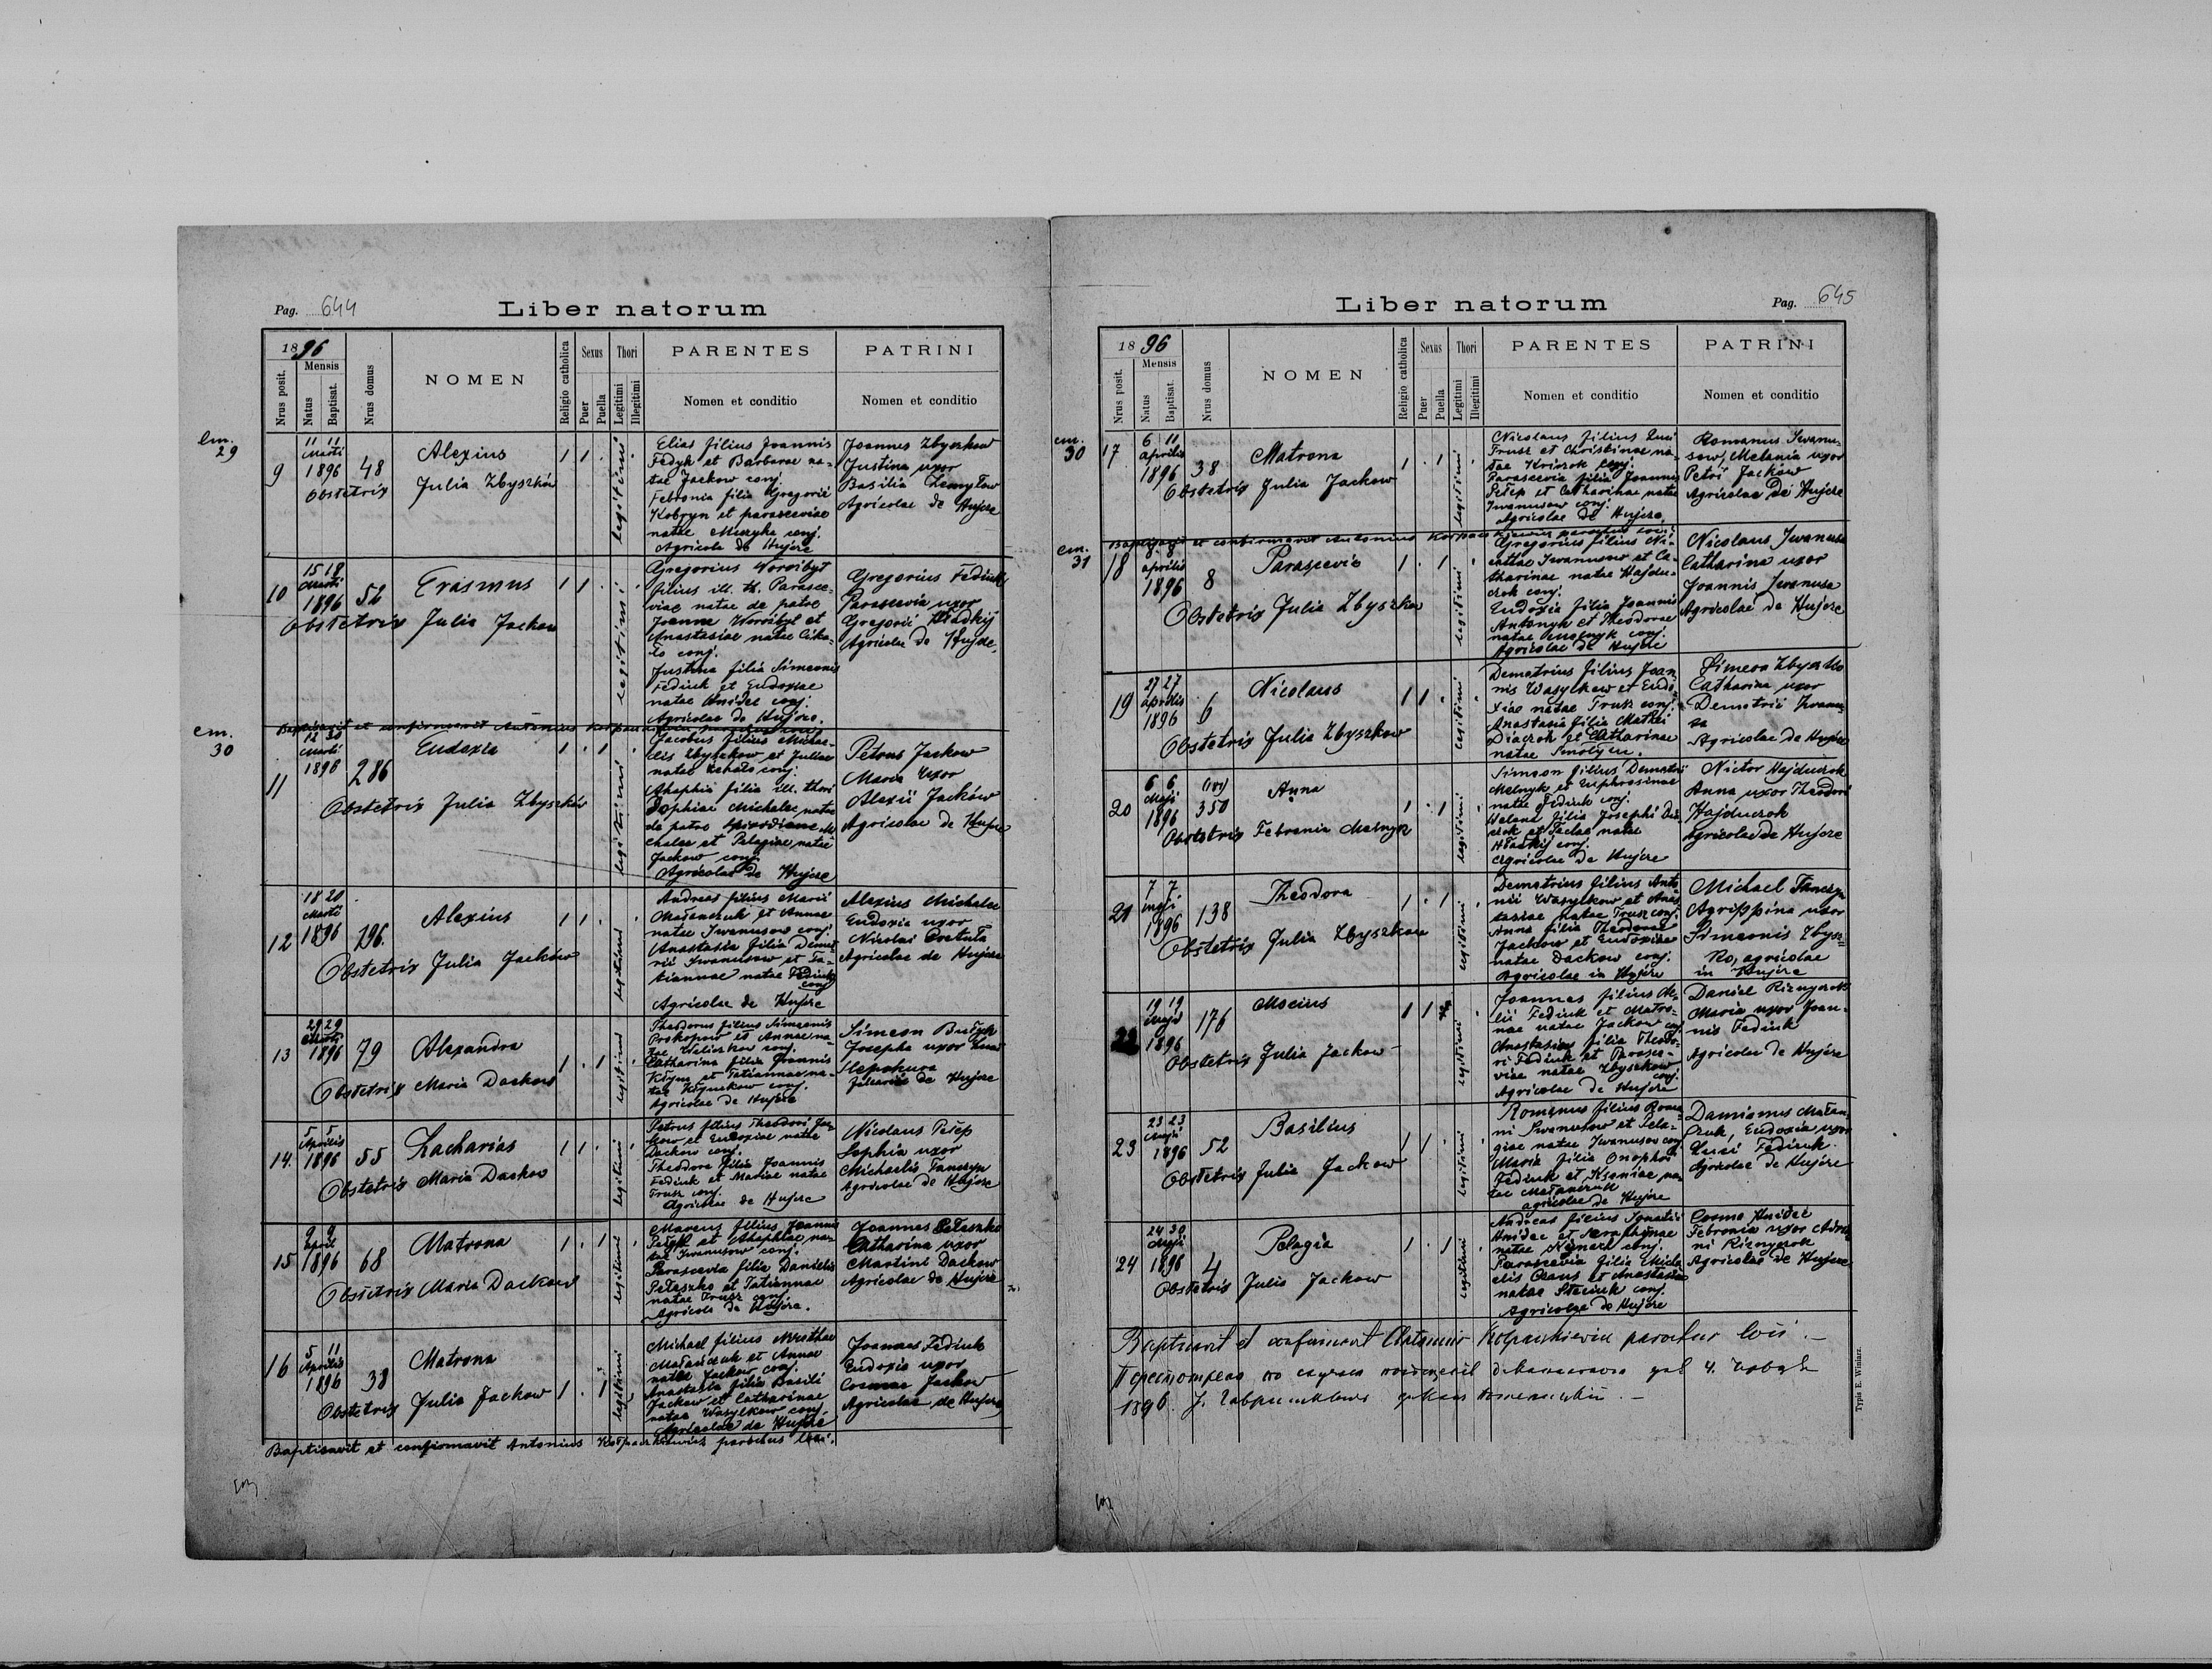 Pag. 644
Liber natorum
1896
Nrus posit.
Mensis
Natus
Baptisat.
Nrus domus
NOMEN
Religio catholica
Sexus
Puer
Puella
Thori
Legitimi
Illegitimi
PARENTES
Nomen et conditio
PATRINI
Nomen et conditio
em. 29
9
11 11
Marti
1896
48
Alexius
Obstetrix Julia Zbyszków
1 1
legitimi
Elias filius Joannis
Fedyk et Barbarae na-
tae Jackow conj.
Febronia filia Gregorii
Kobryn et parasceviae
natae Muzyka conj.
Agricola de Hujcze
Joannes Zbyszkow
Justina uxor
Basilia
Agricolae de Hujcze
10
15 18
Marti
1896
52
Erasmus
Obstetrix Julia Jackow
1 1
legitimi
Gregorius Worobyt
filius ill. th. Parasce-
viae natae de patre
Joanne Worobyt et
Anastasiae natae
conj.
Justina filia Simeonis
Fediuk et Eudoxiae
natae Hnidec conj.
Agricolae de Hujcze.
Gregorius Fediuk
Parascevia uxor
Gregorii Hladkij
Agricolae de
Baptisavit et confirmavit Antonius
em. 30
11
12 30
Marti
1896
286
Eudoxia
Obstetrix Julia Zbyszków
1 1
legitimi
Jacobus filius Micha-
elis Zbyszkow et Juliae
natae conj.
Ahaphia filia ill. thori
Sophiae Michalec natae
de patre Mi-
chalec et Pelagiae natae
Jackow conj.
Agricolae de Hujcze
Petrus Jackow
Maria uxor
Alexii Jacków
Agricolae de Hujcze
12
18 20
Marti
1896
196.
Alexius
Obstetrix Julia Jacków
1 1
legitimi
Andreas filius Marci
Małanczuk et Annae
natae Iwanusow conj.
Anastasia filia Demet
rii Iwanusow et Ta-
tiannae natae Fediuk
conj
Agricolae de Hujcze
Alexius Michalec
Eudoxia uxor
Nicolai
Agricolae de Hujcze
13
29 29
Marti
1896
79
Alexandra
Obstetrix Maria Dackow
1 1
legitimi
Theodorus filius Simeonis
Prokopow et Annae na-
tae conj.
Catharina filia Joannis
Kłym et Tatiannae na-
tae conj.
Agricolae de Hujcze
Simeon
Josepha uxor Lucae
Slepokura
de Hujcze
14.
5 5
Aprilis
1896
55
Zacharias
Obstetrix Maria Dackow
1 1
legitimi
Petrus filius Theodori Jac-
kow et Eudoxiae natae
Dackow conj.
Theodora filia Joannis
Fediuk et Mariae natae
Trusz conj.
Agricolae de Hujcze
Nicolaus Petep
Sophia uxor
Michaelis Tanczyn
Agricolae de Hujcze
15
9 9
April
1896
68
Matrona
Obstetrix Maria Dackow
1 1
legitimi
Marcus filius Joannis
et Ahaphiae na-
tae Iwanusow conj.
Parascevia filia Danielis
Petaszko et Tatiannae
natae Trusz conj.
Agricola de Hujcze.
Joannes Petaszko
Catharina uxor
Martini Dackow
Agricolae de Hujcze
16
5 11
Aprilis
1896
38
Matrona
Obstetrix Julia Jackow
1 1
legitimi
Michael filius
Małanczuk et Annae
natae Jackow conj.
Anastasia filia Basilii
Jackow et Catharinae
natae Wasylkow conj.
Agricolae de Hujcze
Joannes Fediuk
Eudoxia uxor
Cosmae Jackow
Agricolae de Hujcze
Baptisavit et confirmavit Antonius parochus loci.
Liber natorum
Pag. 645
1896
Nrus posit.
Mensis
Natus
Baptisat.
Nrus domus
NOMEN
Religio catholica
Sexus
Puer
Puella
Thori
Legitimi
Illegitimi
PARENTES
Nomen et conditio
PATRINI
Nomen et conditio
em. 30
17
6 11
Aprilis
1896
38
Matrona
Obstetrix Julia Jackow
1 1
legitimi
Nicolaus filius Luci
Trusz et Christinae na-
tae conj.
Parascevia filia Joannis
Petep et Catharinae natae
Iwanusow conj.
Agricolae de Hujcze.
Romanus Iwanu-
sow, Melania uxor
Petri Jackow
Agricolae de Hujcze
Baptisavit et confirmavit Antonius parochus loci
em. 31
18
8. 8
Aprilis
1896
8
Parascevia
Obstetrix Julia Zbyszkow
1 1
legitimi
Gregorius filius Ni-
Iwanusow et Ca-
tharinae natae Hajdu-
czok conj.
Eudoxia filia Joannis
Antonyk et Theodorae
natae Melnyk conj.
Agricolae de Hujcze
Nicolaus Iwanusa
Catharina uxor
Joannis Iwanusa
Agricolae de Hujcze
19
27 27
Aprilis
1896
6
Nicolaus
Obstetrix Julia Zbyszkow
1 1
legitimi
Demetrius filius Joan
nis Wasylkow et Eudo-
xiae natae Trusz conj.
Anastasia filia Mathei
Diaczok et Catharinae
natae
Simeon Zbyszko
Catharina uxor
Demetrii Iwanu-
sa
Agricolae de Hujcze
20
6 6
Maji
1896
350
Anna
Obstetrix Febronia Melnyk
1 1
legitimi
Simeon filius Demetri
Melnyk et Euphrosinae
natae Fediuk conj.
Helena filia Josephi Dia
czok et Teclae natae
Hładkij conj.
Agricolae de Hujcze
Victor Hajduczok
Anna uxor Theodori
Hajduczok
Agricolae de Hujcze
21
7 7
Maji
1896
138
Theodora
Obstetrix Julia Zbyszkow
1 1
legitimi
Demetrius filius Anto
nii Wasylkow et Anas
tasiae natae Trusz conj.
Anna filia Theodori
Jackow et Eudoxiae
natae Dackow conj.
Agricolae in Hujcze
Michael Tanczyn
Agrippina uxor
Simeonis Zbysz-
ko, agricolae
in Hujcze
22
19 19
Maji
1896
176
Mocius
Obstetrix Julia Jackow
1 1
legitimi
Joannes filius
Fediuk et Matro-
nae natae Jackow conj
Anastasia filia Theodo-
ri Fediuk et Parasce-
viae natae Zbyszkow
conj.
Agricolae de Hujcze
Daniel Riznyczok
Maria uxor Joan-
nis Fediuk
Agricolae de Hujcze
23
23 23
Maji
1896
52
Basilius
Obstetrix Julia Jackow
1 1
legitimi
Romanus filius Roma
ni Iwanusow et Pela-
giae natae Iwanusow conj
Maria filia Onophri
Fediuk et Kseniae na-
tae Małanczuk
agricolae de Hujcze
Damianus Małan-
czuk, Eudoxia uxor
Luci Fediuk
Agricolae de Hujcze
24
24 30
Maji
1896
4
Pelagia
Obstetrix Julia Jackow
1 1
legitimi
Andreas filius Ignatii
Hnidec et Seraphinae
natae conj.
Parascevia filia Micha
elis et Anastasiae
natae Steciuk conj.
Agricolae de Hujcze
Cosma Hnidec
Febronia uxor
Riznyczok
Agricolae de Hujcze
Baptisavit et confirmavit Antonius parochus loci. —
4.
1896.
Typis E. Winiarz.